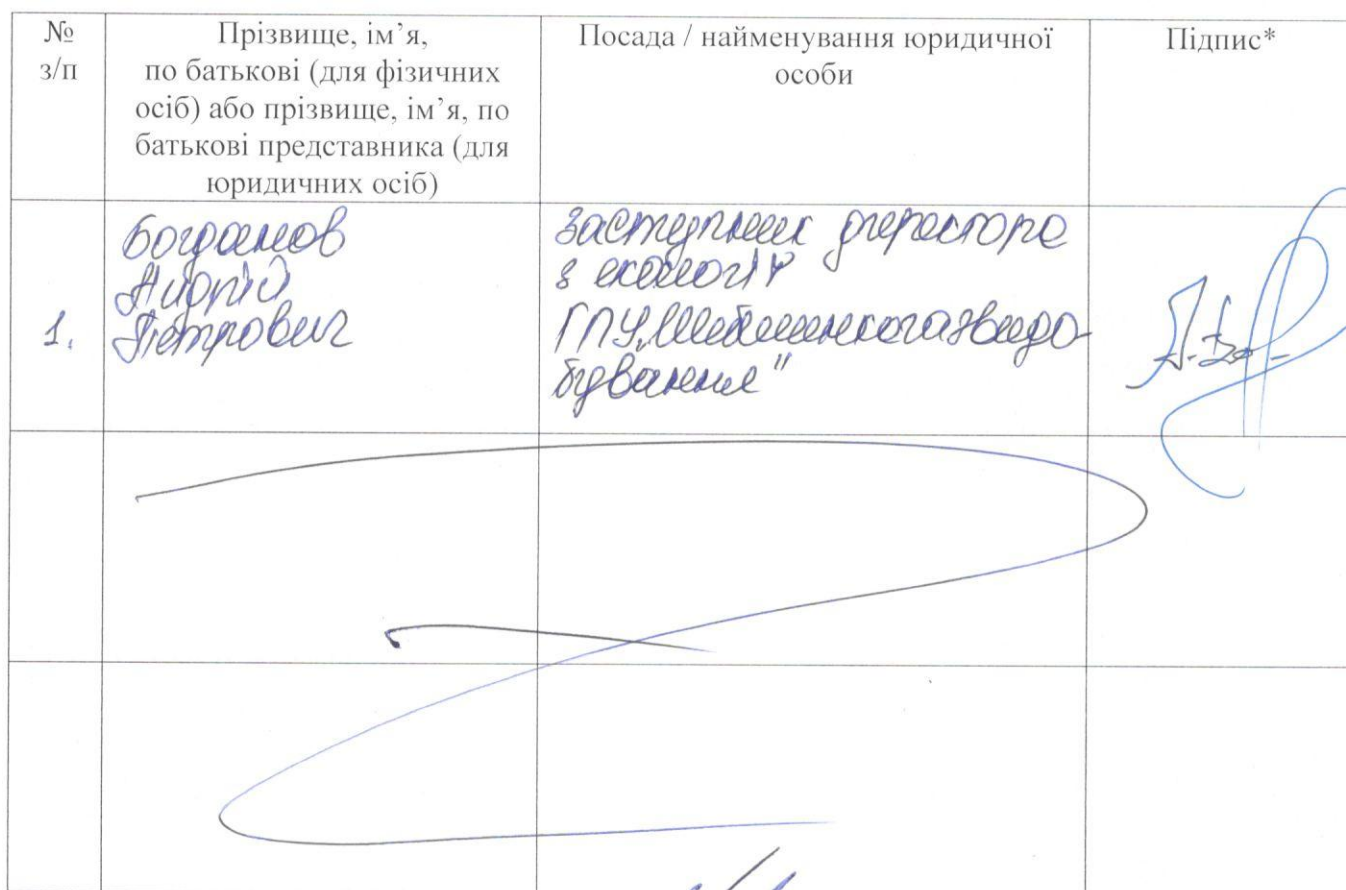 №
з/п
Прізвище, ім’я,
по батькові (для фізичних
осіб) або прізвище, ім’я, по
батькові представника (для
юридичних осіб)
Посада / найменування юридичної
особи
Підпис*
1.
Богданов
Андрій
Петрович
Заступник директора
з екології
ГПУ „Шебелинкагазвидо-
бування"